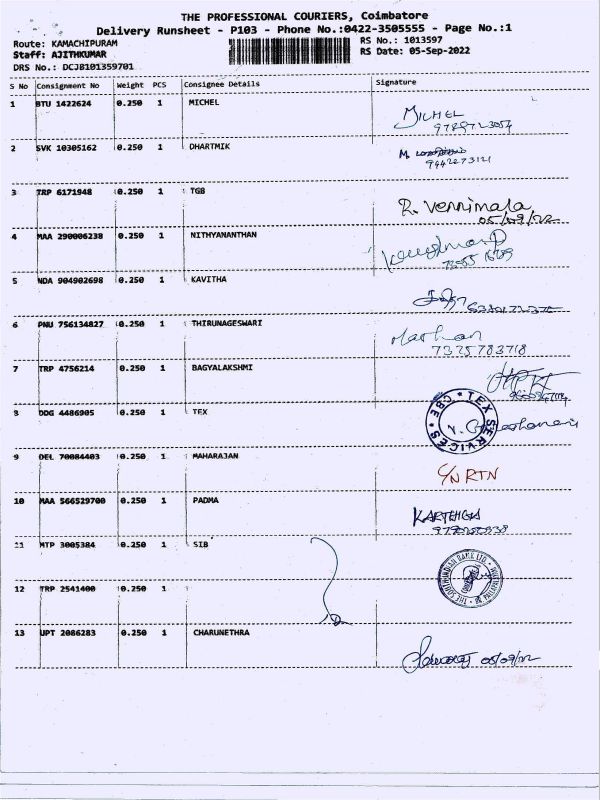 THE PROFESSIONAL COURIERS, Coimbatore
Delivery Runsheet - P103 - Phone No.:0422-3505555 - Page No.:1
Route: KAMACHIPURAM
RS No.: 1013597
Staff: AJITHKUMAR
RS Date: 05-Sep-2022
DRS No.: DCJB101359701
S No Consignment No Weight PCS Consignee Details Signature
1 BTU 1422624 0.250 1 MICHEL
MICHEL
2 SVK 10305162 0.250 1 DHARTMIK
M.
9442273121
3 TRP 6171948 0.250 1 TGB
R. Vennimala
05/09/22
4 MAA 290006238 0.250 1 NITHYANANTHAN
5 NDA 904902698 0.250 1 KAVITHA
6 PNU 756134827 0.250 1 THIRUNAGESWARI
7325783718
7 TRP 4756214 0.250 1 BAGYALAKSHMI
8 DDG 4486905 0.250 1 TEX
TEX SERVICES * CBE *
9 DEL 70084403 0.250 1 MAHARAJAN
C/N RTN
10 MAA 566529700 0.250 1 PADMA
11 MTP 3005384 0.250 1 SIB
THE SOUTH INDIAN BANK LTD.
12 TRP 2541400 0.250 1
13 UPT 2086283 0.250 1 CHARUNETHRA
05/09/22